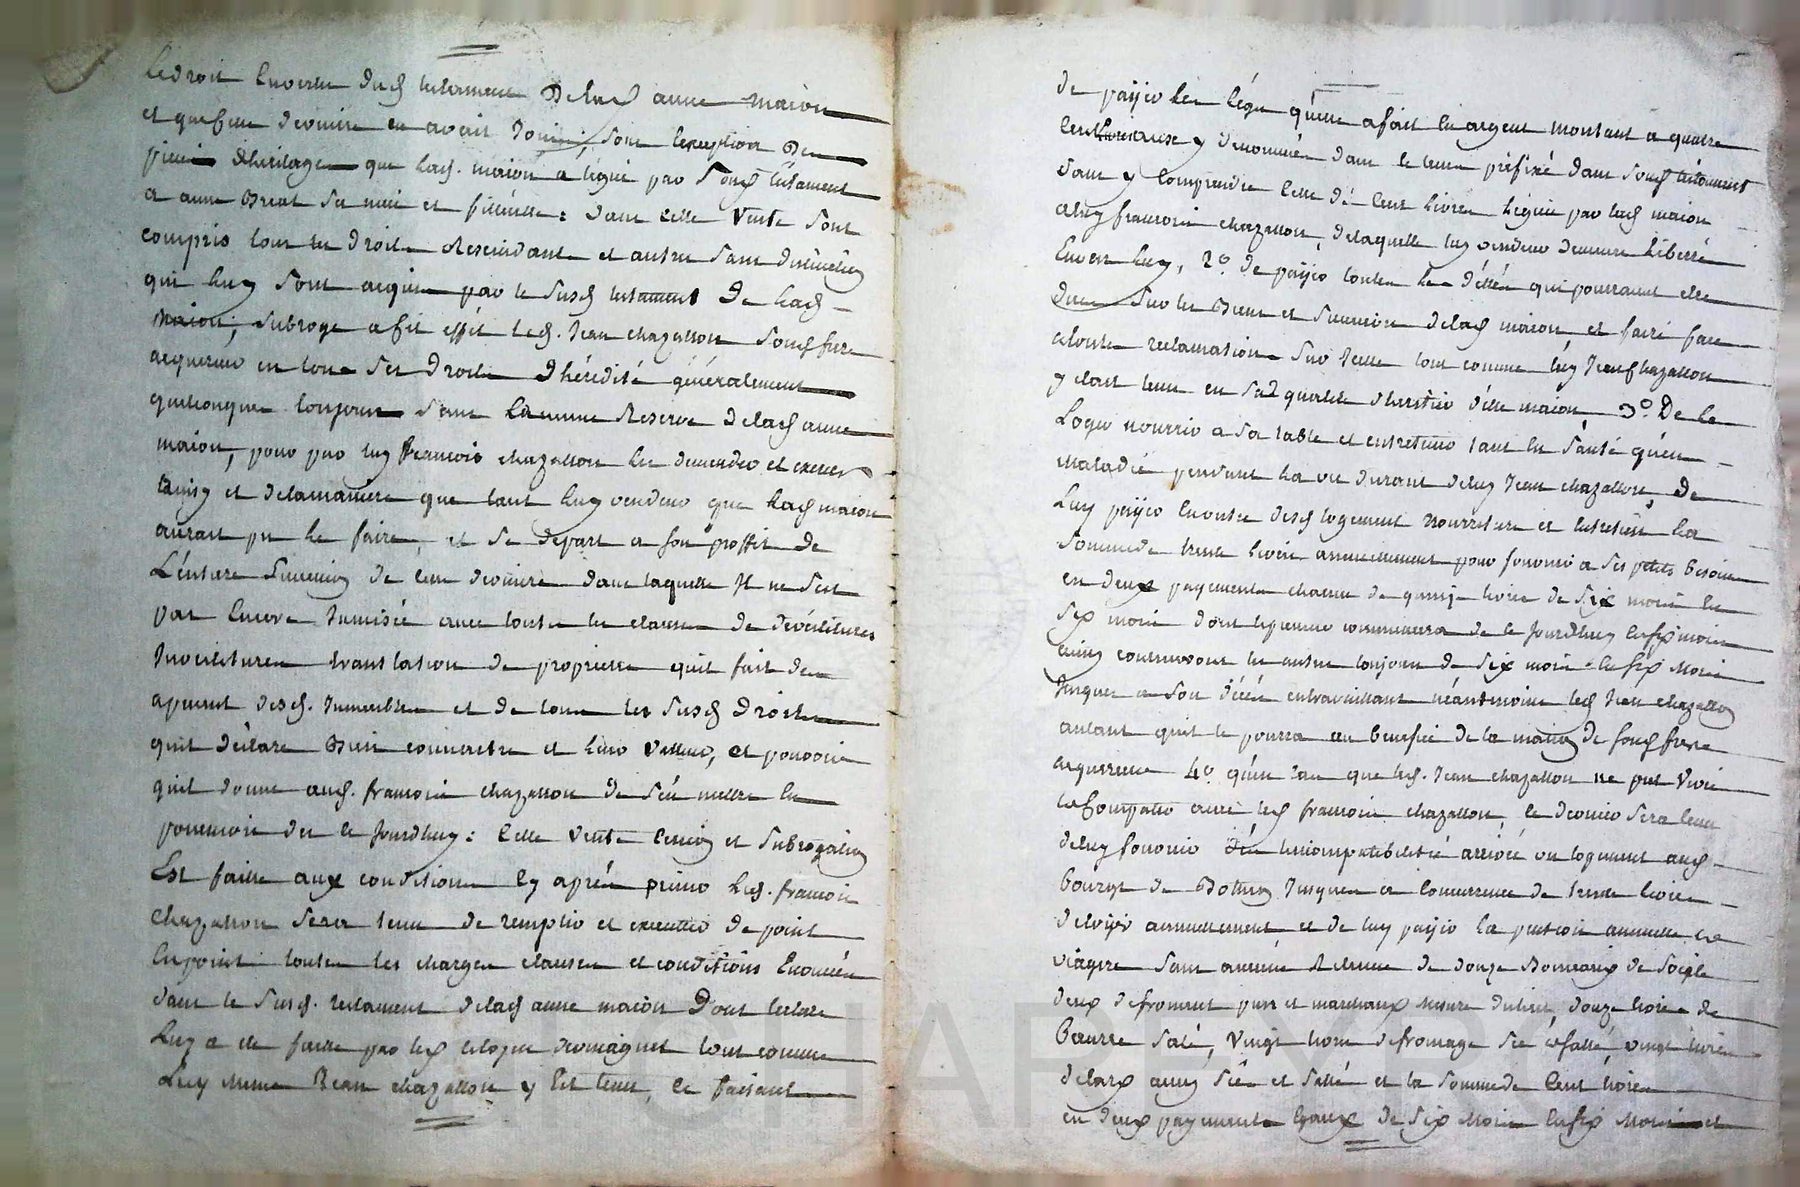 Le droit en vertu dud testament de lad anne maion
et que cette derniere en avait joui, sous l'exception des
pieces d'heritages que lad. maion a légué par sond testament
a anne Breat sa niece et filleulle: dans cette vente sont
compris tous les droits Rescindants et autres sans distinction
qui luy sont acquis par le susd testament de lad
maion, subroge a cet effet led. Jean chazallon sond frere
acquereur en tous ses droits d'hérédité généralement
quelconques toujours sans aucune Reserve de lad anne
maion, pour par luy francois chazallon les demander et exercer
ainsy et de la maniere que tant luy vendeur que lad maion
aurait pu le faire, et se départ a son proffit de
l'entiere succession de cette derniere dans laquelle Il ne s'est
pas encore Immiscé avec toutes les clauses de dévéstitures
Investitures translation de proprieté qu'il fait des
apresent desd. Immeubles et de tous les susd droits
qu'il déclare Bien connaitre et leur valleur, et pouvoir
qu'il donne aud. francois chazallon de s'en mettre en
possession des le Jourdhuy: cette vente cession et subrogation
Est faitte aux conditions cy aprés primo led. francois
chazallon sera tenu de remplir et executer de point
En point toutes les charges clauses et conditions Enoncées
dans le susd. testament de lad anne maion dont lecture
Luy a ete faitte par led citoyen dromaguet tout comme
Luy meme Jean chazallon y Est tenu, ce faisant
de payer les légats qu'elle a fait en argent montant a quatre
cent y denommés dans le terme préfixé dans sond testament
sans y comprendre celle de cent livres léguée par lad maion
a luy francois chazallon, de laquelle led vendeur demeure libéré
Envers luy, 2º. de payer toutes les déttes qui pourraient etre
dues sur les Biens et succession de lad maion, et faire face
a toutes reclamations sur Icelle tout comme luy Jean chazallon
y etait tenu en sad qualité d'heritier d'elle maion 3º. De le
Loger nourrir a sa table et entretenir tant en santé qu'en
maladie pendant la vie durant de luy Jean chazallon, de
Luy payer en outre desd logement nourriture et entretien la
somme de trente livres annuellement pour fournir a ses petits besoins
en deux payements chacun de quinze livres de six mois en
six mois dont le premier commencera de ce Jourdhuy en six mois
ainsy continueront les autres toujours de six mois en six mois
Jusques a son décés en travaillant néantmoins led Jean chazallon
autant qu'il le pourra au benefice de la maison de sond frere
acquereur 4º. qu'en cas que led. Jean chazallon ne put vivre
et compatir avec led francois chazallon, ce dernier sera tenu
de luy fournir l'incompatibilité arrivée un logement aud
bourg de Jusques a concurrence de trente livres
de loyer annuellement et de luy payer la pension annuelle et
viagere sans aucune Retenue de douze de soigle
deux de froment purs et marchands mesure du lieu, douze livres de
Beurre salé, vingt livres de fromage sec et sallé, vingt livres
de lard aussy sec et sallé et la somme de cent livres
en deux payements Egaux de six mois en six mois et